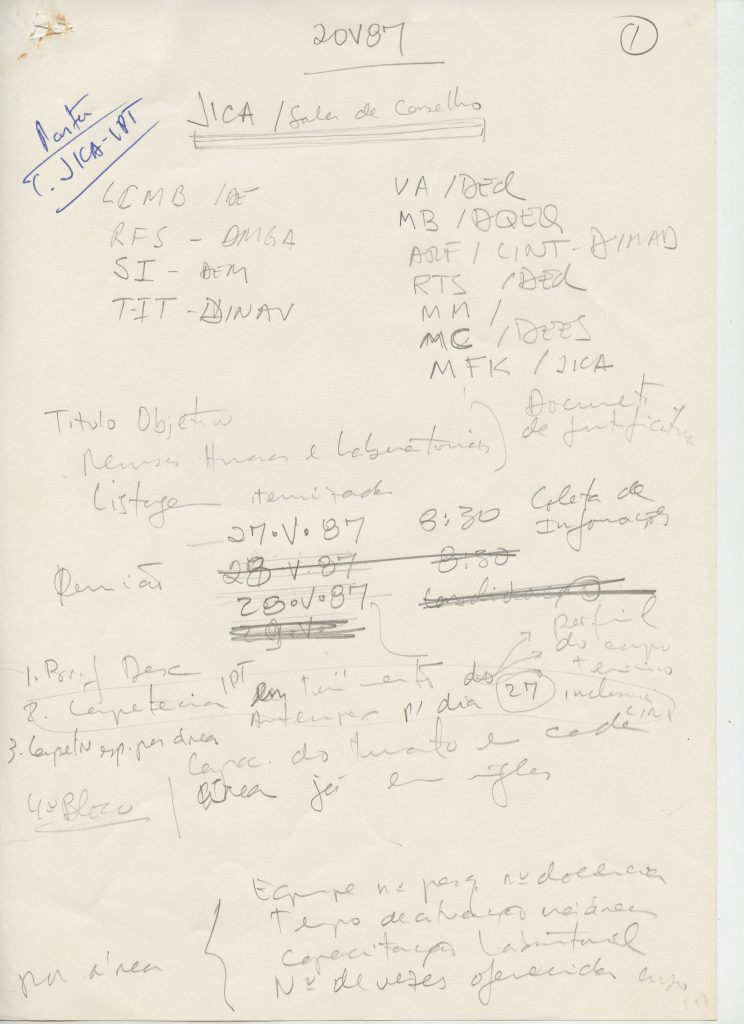 20V87
1
Pasta
C. JICA-IPT
JICA / Sala de Conselho
LCMB /DE
RFS - DMGA
SI - DEM
TIT - DINAV
VA /DED
MB /DQEQ
ARF / CINT-DIMAD
RTS /DED
MM /
MC /DEES
MFK / JICA
Titulo Objetivo
Recursos Humanos e Laboratórios
Documento
de justificativa
Listagem itemizada
27.V.87 8:30 Coleta de
Informações
Reunião 28.V.87 8:30
28.V.87
29.V.
perfil
do corpo
técnico
inclusive
CINT
1. Brief Desc
2. Competencia IPT
p/ dia 27
3. esp. por área
Capac. do Instituto e cada
área já em inglês
4º Bloco
por área
Equipe nº pesq nº docencia
Tempo de atuação na área
Capacitação Laboratorial
Nº de vezes oferecida curso